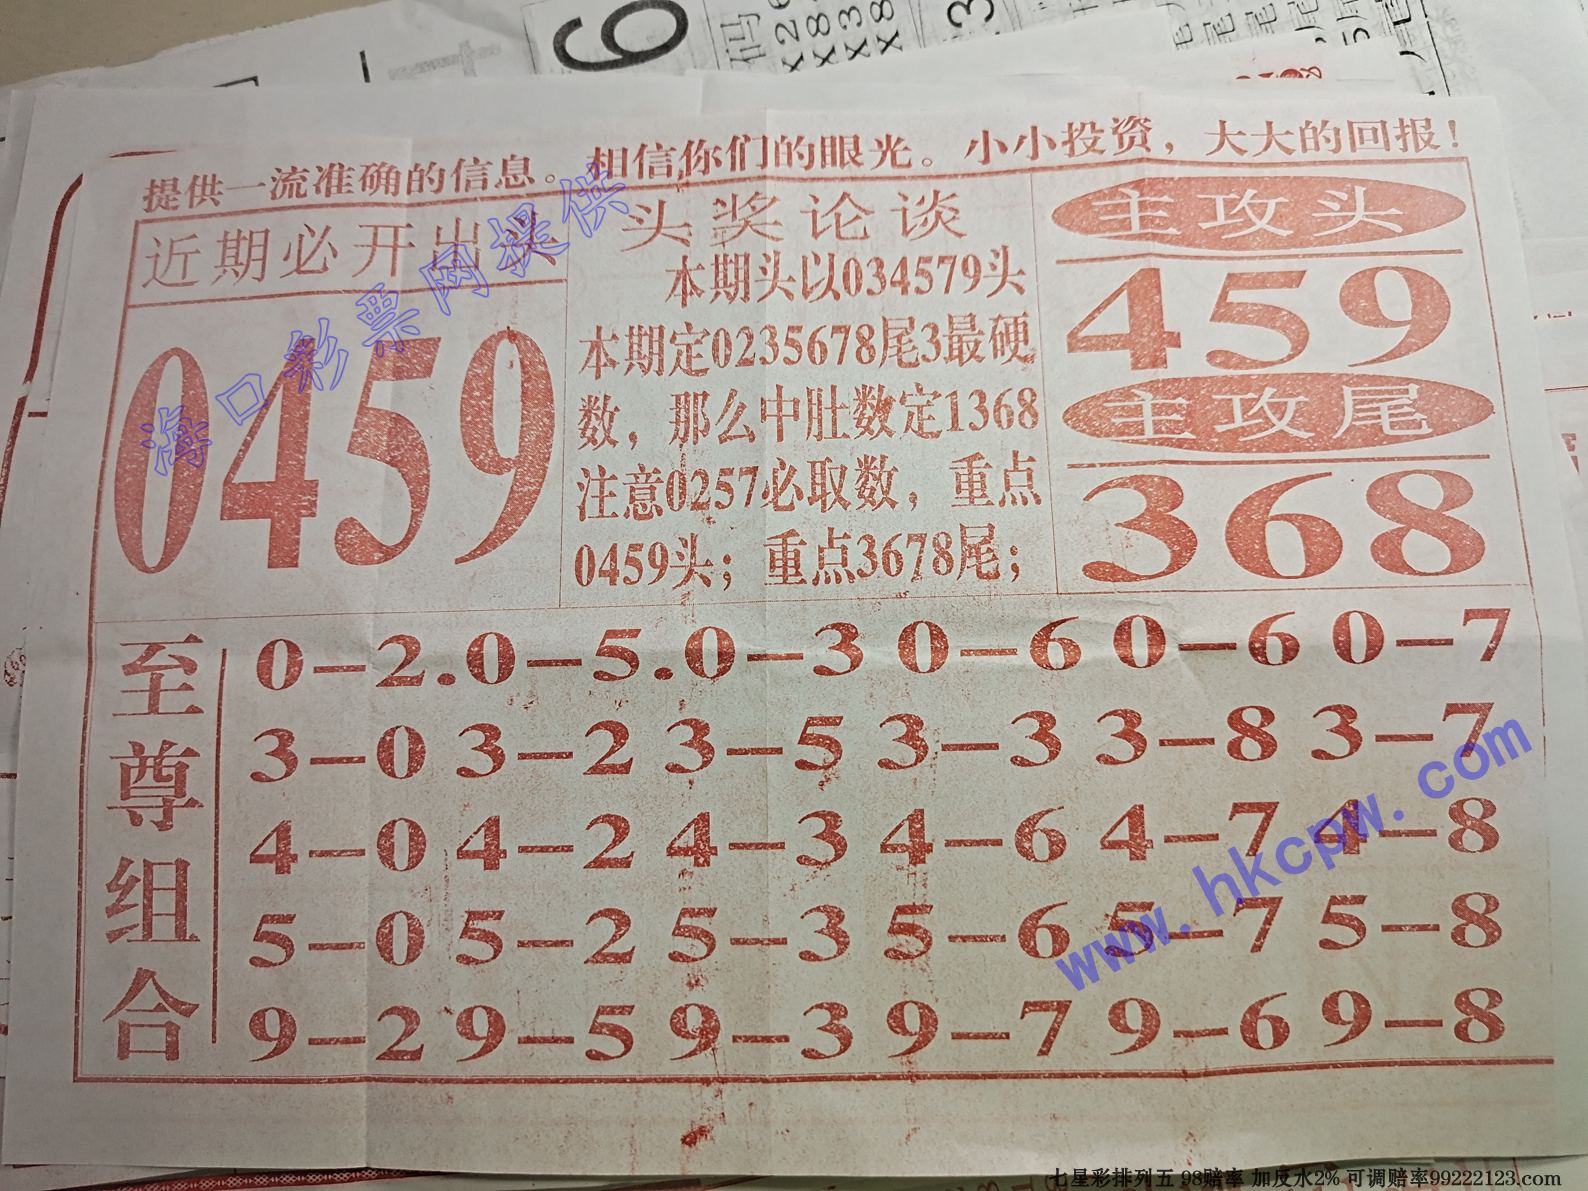 提供一流准确的信息。相信你们的眼光。小小投资，大大的回报！
近期必开出头
0459
头奖论谈
本期头以034579头
本期定0235678尾3最硬
数，那么中肚数定1368
注意0257必取数，重点
0459头；重点3678尾；
主攻头
459
主攻尾
368
至尊组合
0–2.0–5.0–3 0–6 0–6 0–7
3–0 3–2 3–5 3–3 3–8 3–7
4–0 4–2 4–3 4–6 4–7 4–8
5–0 5–2 5–3 5–6 5–7 5–8
9–2 9–5 9–3 9–7 9–6 9–8
海口彩票网提供
www.hkcpw.com
七星彩排列五 98赔率 加反水2% 可调赔率99222123.com